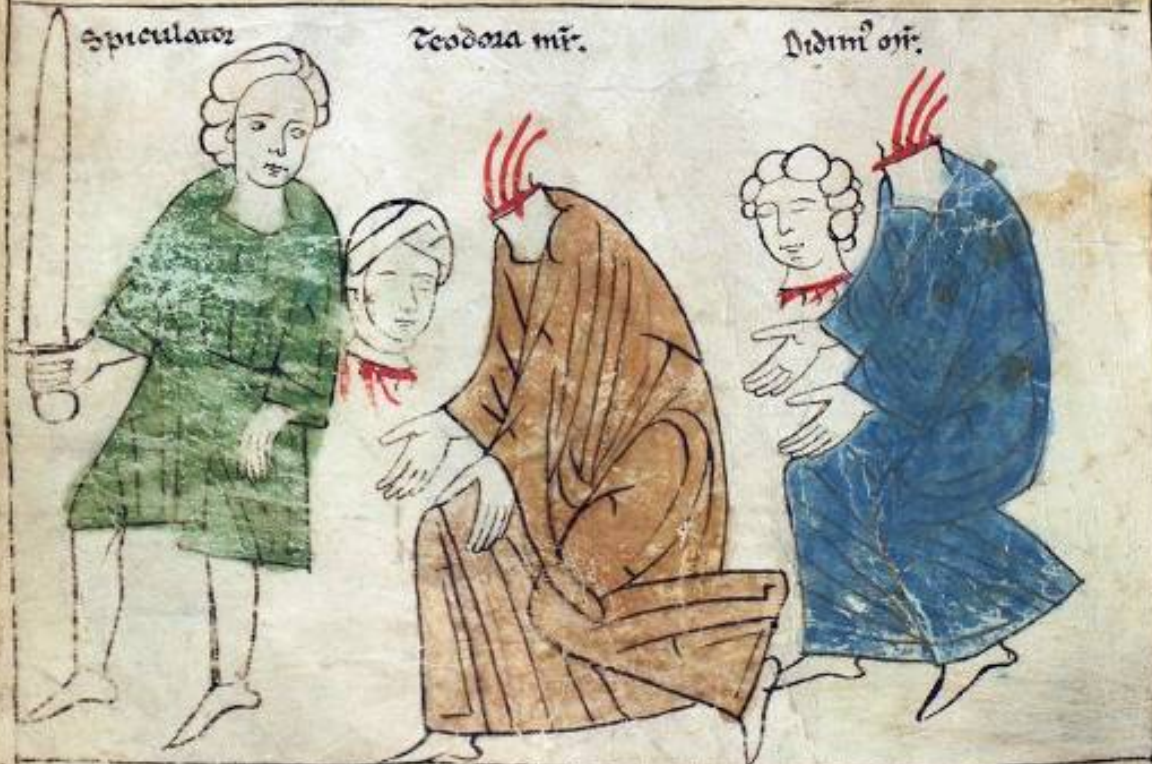 Spiculator
Teodora mr̄.
Didim⁹ mr̄.